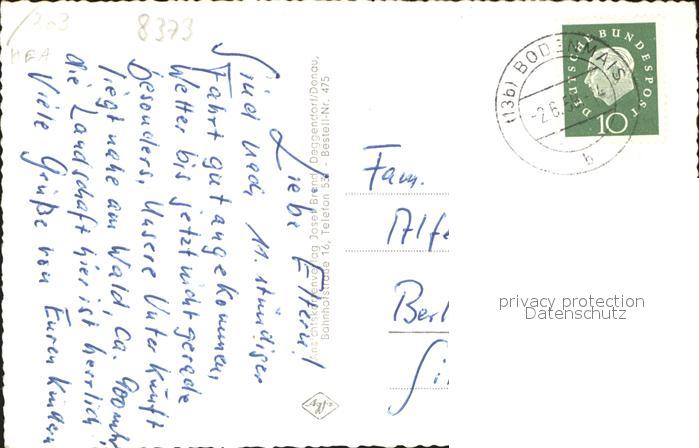 8373
Liebe Eltern!
Sind nach 11 stündiger
Fahrt gut angekommen,
Wetter bis jetzt nicht gerade
besonders. Unsere Unterkunft
liegt nahe am Wald, ca. 900 mh
die Landschaft hier ist herrlich
Viele Grüße von Euren Kindern
Ansichtskartenverlag Josef Brandl, Deggendorf/Donau,
Bahnhofstraße 16, Telefon 53 - Bestell-Nr. 475
Agfa
(13b) BODENMAIS
-2.6.
b
DEUTSCHE BUNDESPOST
10
Fam.
Alfe
Berl
privacy protection
Datenschutz